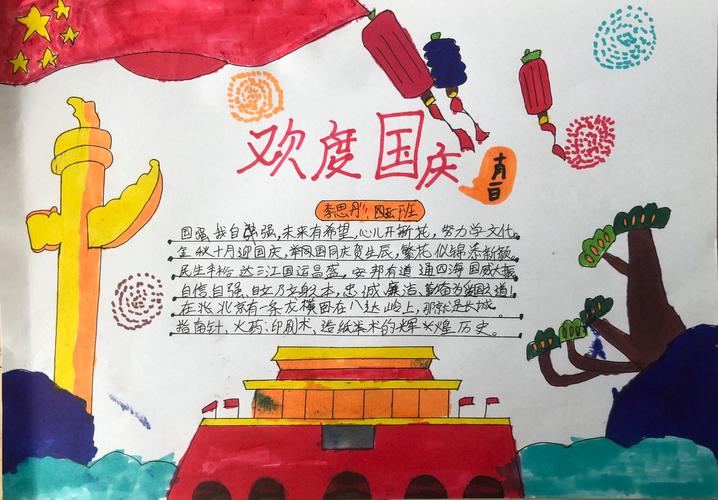 欢度国庆
十月一日
李思彤 四五班
国强我自强,未来有希望,心儿开新花,努力学文化。
金秋十月迎国庆,举网国同庆贺生辰,繁花似锦添新颜。
民生丰裕达三江国运昌盛,安邦有道通四海国威大振
自信自强、自立,忠诚、廉洁、勤奋为国之道!
在北北京有一条龙横画在八达岭上,那就是长城。
指南针、火药、印刷术、造纸术的辉煌历史。